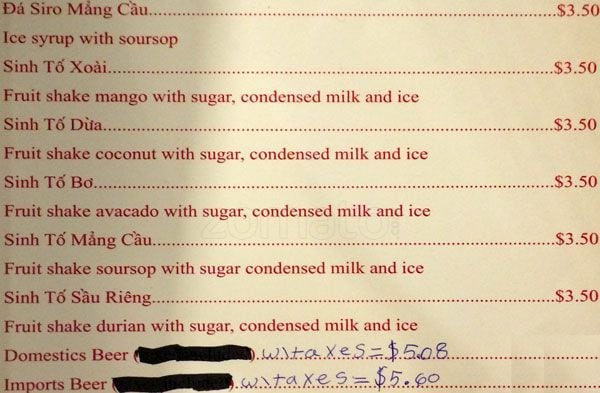 Đá Siro Mảng Cầu...$3.50
Ice syrup with soursop
Sinh Tố Xoài...$3.50
Fruit shake mango with sugar, condensed milk and ice
Sinh Tố Dừa...$3.50
Fruit shake coconut with sugar, condensed milk and ice
Sinh Tố Bơ...$3.50
Fruit shake avacado with sugar, condensed milk and ice
Sinh Tố Mảng Cầu...$3.50
Fruit shake soursop with sugar condensed milk and ice
Sinh Tố Sầu Riêng...$3.50
Fruit shake durian with sugar, condensed milk and ice
Domestics Beer ( ) w\taxes=$5.08
Imports Beer ( ) w\taxes=$5.60
zomato